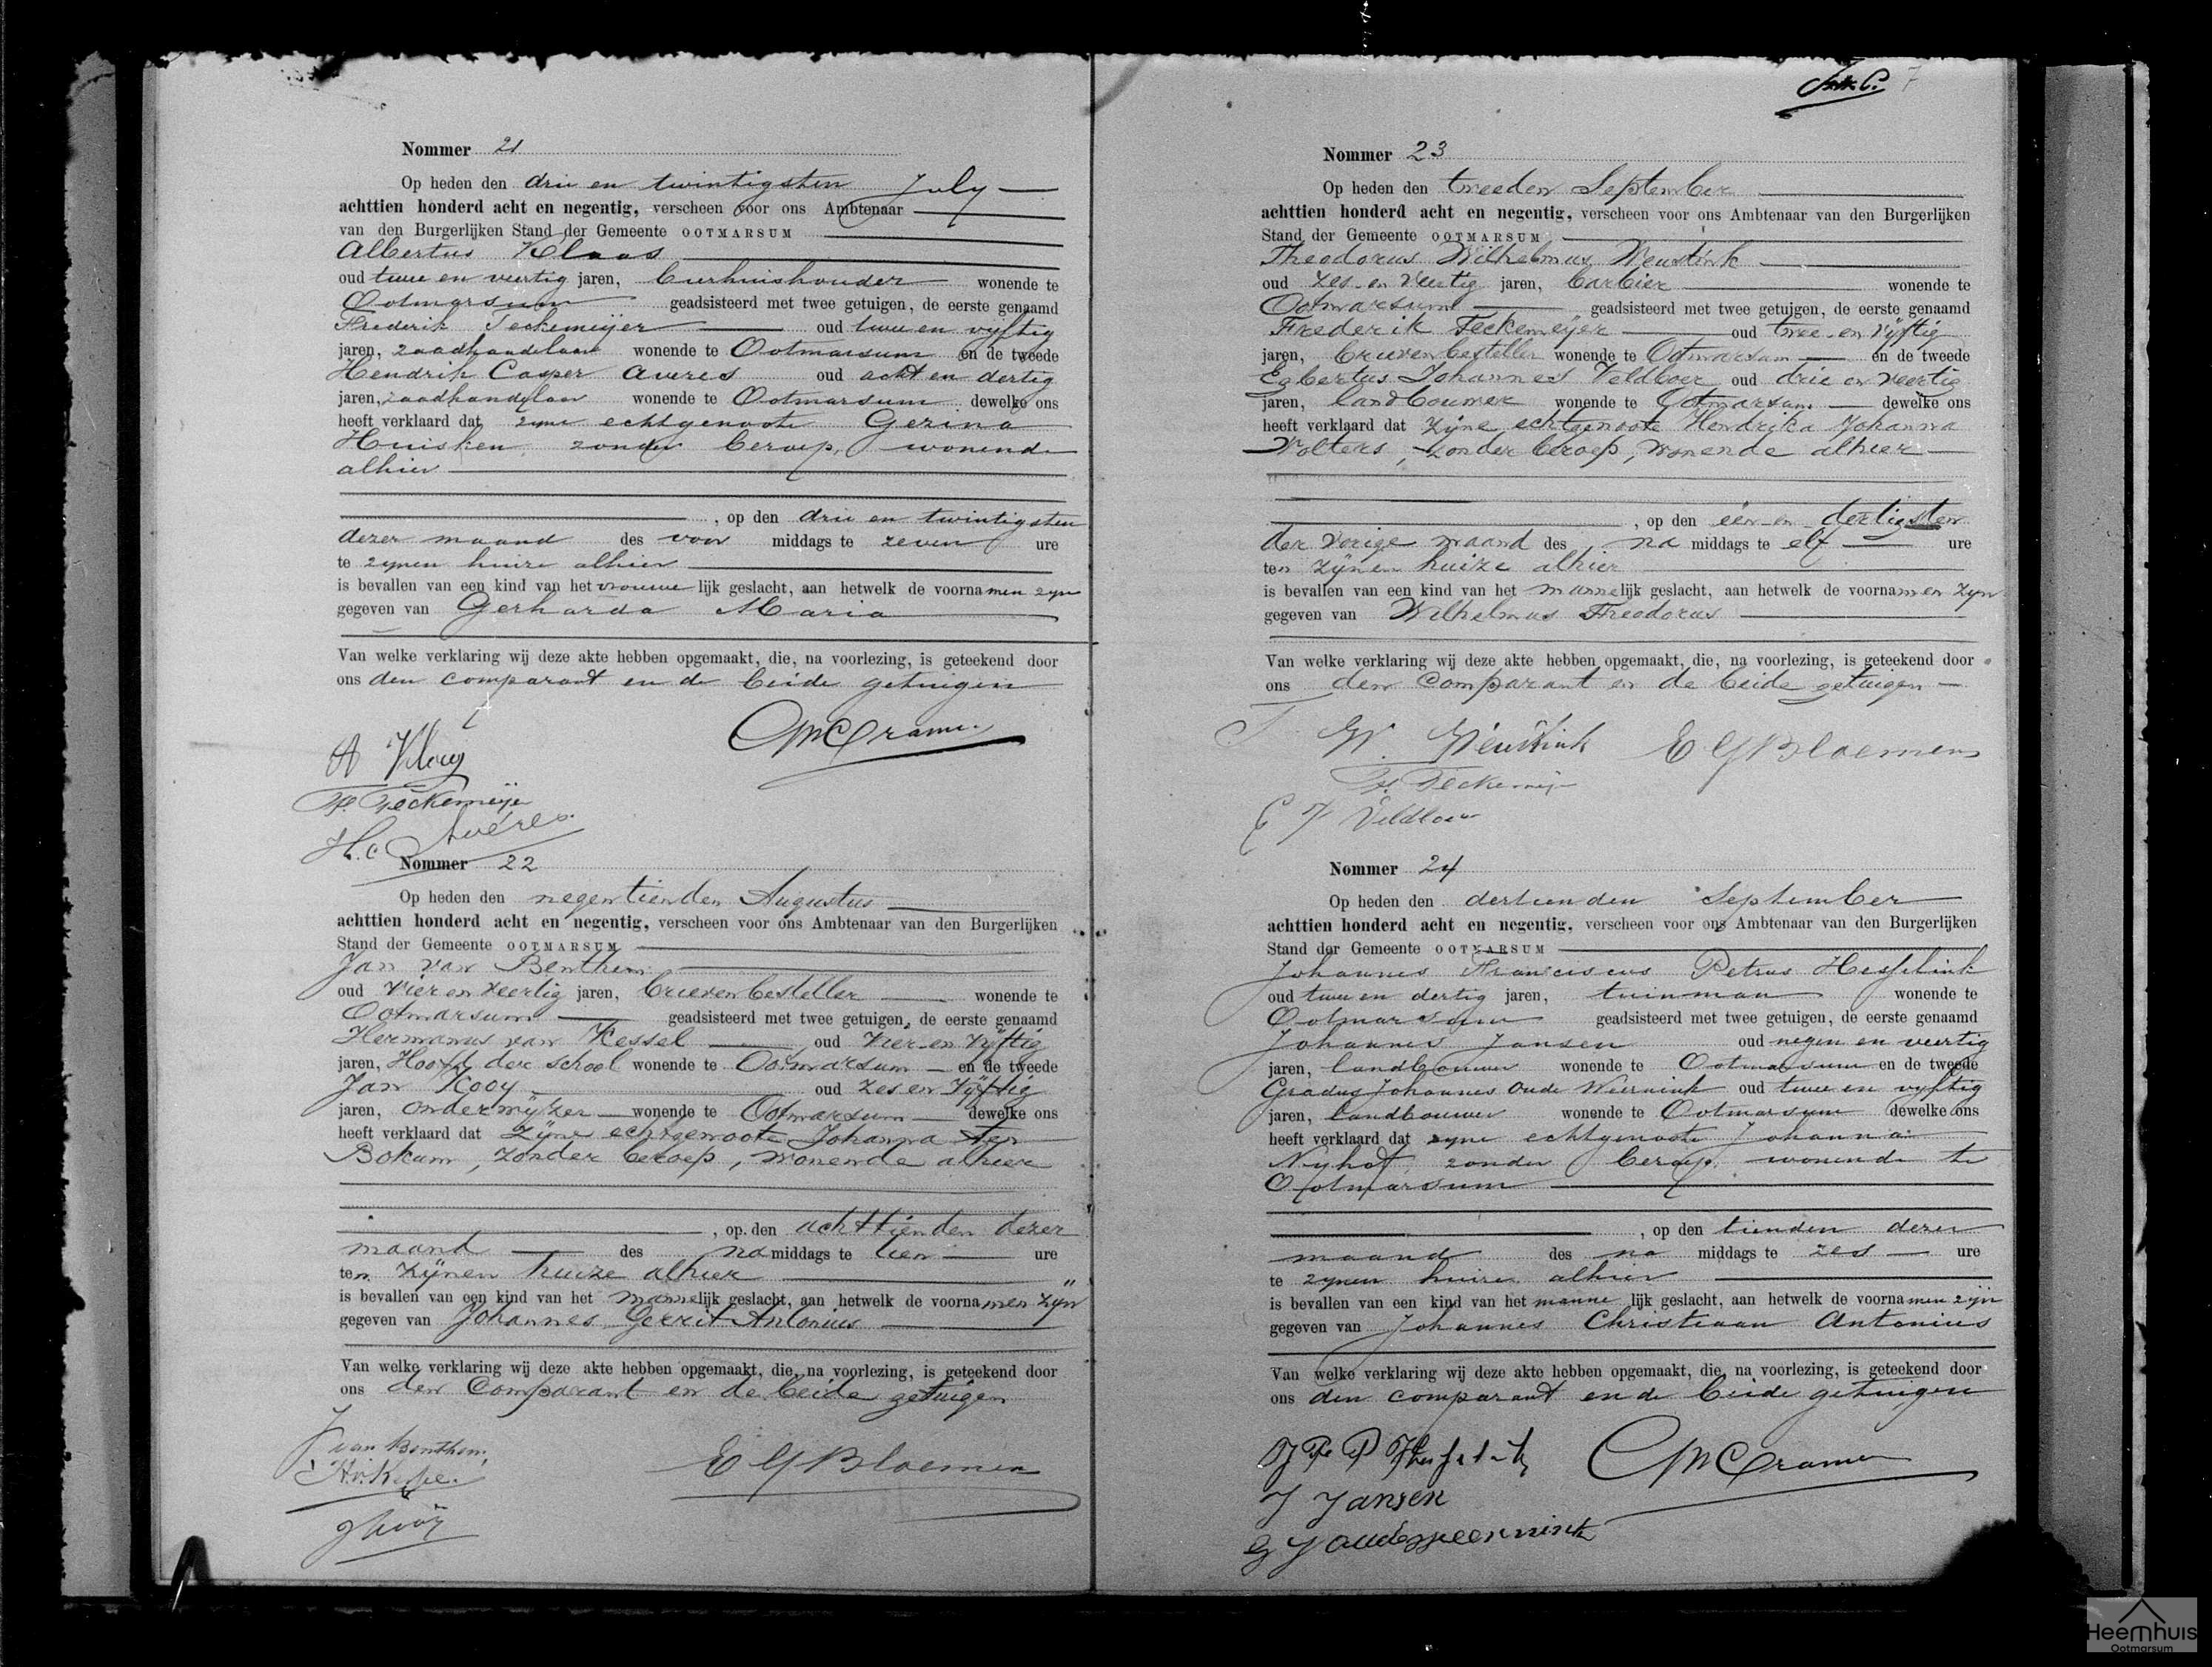 Nommer 21
Op heden den drie en twintigsten July
achttien honderd acht en negentig, verscheen voor ons Ambtenaar
van den Burgerlijken Stand der Gemeente OOTMARSUM
Albertus Klaas
oud twee en veertig jaren, bierhuishouder wonende te
Ootmarsum geadsisteerd met twee getuigen, de eerste genaamd
Frederik Teckemeijer oud twee en vijftig
jaren, zaadhandelaar wonende te Ootmarsum en de tweede
Hendrik Casper Averes oud acht en dertig
jaren, zaadhandelaar wonende te Ootmarsum dewelke ons
heeft verklaard dat zyne echtgenoote Gezina
Huisken zonder beroep, wonende
alhier
, op den drie en twintigsten
dezer maand des voor middags te zeven ure
te zynen huize alhier
is bevallen van een kind van het vrouwe lijk geslacht, aan hetwelk de voornamen zyn
gegeven van Gerharda Maria
Van welke verklaring wij deze akte hebben opgemaakt, die, na voorlezing, is geteekend door
ons den comparant en de beide getuigen
A Klaas
Cramer
Fr. Teckemeijer
H.C Avéres.
Nommer 22
Op heden den negentienden Augustus
achttien honderd acht en negentig, verscheen voor ons Ambtenaar van den Burgerlijken
Stand der Gemeente OOTMARSUM
Jan van Benthem
oud vier en veertig jaren, brievenbesteller wonende te
Ootmarsum geadsisteerd met twee getuigen, de eerste genaamd
Hermanus van Kessel oud vier en vyftig
jaren, Hoofd der school wonende te Ootmarsum en de tweede
Jan Kooy oud zes en vyftig
jaren, onderwijzer wonende te Ootmarsum dewelke ons
heeft verklaard dat zijne echtgenoote Johanna ten
Bokum, zonder beroep, wonende alhier
, op den achttienden dezer
maand des na middags te tien ure
ten zijnen huize alhier
is bevallen van een kind van het mannelijk geslacht, aan hetwelk de voornamen zijn
gegeven van Johannes Gerrit Antonius
Van welke verklaring wij deze akte hebben opgemaakt, die, na voorlezing, is geteekend door
ons den Comparant en de beide getuigen
J van Benthem
E G Bloemen
H.v.Kessel.
J Kooij
7
Nommer 23
Op heden den tweeden September
achttien honderd acht en negentig, verscheen voor ons Ambtenaar van den Burgerlijken
Stand der Gemeente OOTMARSUM
Theodorus Wilhelmus Weustink
oud zes en veertig jaren, barbier wonende te
Ootmarsum geadsisteerd met twee getuigen, de eerste genaamd
Frederik Teckemeijer oud twee en vijftig
jaren, brievenbesteller wonende te Ootmarsum en de tweede
Egbertus Johannes Veldboer oud drie en veertig
jaren, landbouwer wonende te Ootmarsum dewelke ons
heeft verklaard dat zijne echtgenoote Hendrika Johanna
Wolters, zonder beroep, wonende alhier
, op den een en dertigsten
der vorige maand des na middags te elf ure
ten zijnen huize alhier
is bevallen van een kind van het mannelijk geslacht, aan hetwelk de voornamen zyn
gegeven van Wilhelmus Theodorus
Van welke verklaring wij deze akte hebben opgemaakt, die, na voorlezing, is geteekend door
ons den Comparant en de beide getuigen
T W Weustink
E G Bloemen
Fr. Teckemeijer
E J Veldboer
Nommer 24
Op heden den dertienden September
achttien honderd acht en negentig, verscheen voor ons Ambtenaar van den Burgerlijken
Stand der Gemeente OOTMARSUM
Johannes Franciscus Petrus Hesselink
oud twee en dertig jaren, tuinman wonende te
Ootmarsum geadsisteerd met twee getuigen, de eerste genaamd
Johannes Jansen oud negen en veertig
jaren, landbouwer wonende te Ootmarsum en de tweede
Gradus Johannes oude Weernink oud twee en vyftig
jaren, landbouwer wonende te Ootmarsum dewelke ons
heeft verklaard dat zyne echtgenoote Johanna
Nyhof, zonder beroep, wonende te
Ootmarsum
, op den tienden dezer
maand des na middags te zes ure
te zynen huize alhier
is bevallen van een kind van het manne lijk geslacht, aan hetwelk de voornamen zijn
gegeven van Johannes Christiaan Antonius
Van welke verklaring wij deze akte hebben opgemaakt, die, na voorlezing, is geteekend door
ons den comparant en de beide getuigen
J F P Hesselink
Cramer
J Jansen
G J oude weernink
Heemhuis
Ootmarsum